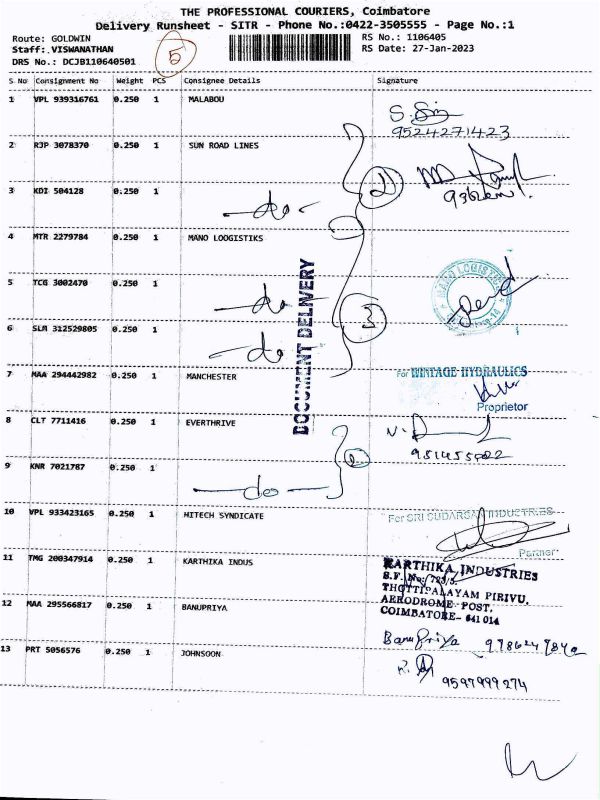 THE PROFESSIONAL COURIERS, Coimbatore
Delivery Runsheet - SITR - Phone No.:0422-3505555 - Page No.:1
Route: GOLDWIN
RS No.: 1106405
Staff: VISWANATHAN
5
RS Date: 27-Jan-2023
DRS No.: DCJB110640501
S No Consignment No Weight PCS Consignee Details Signature
1 VPL 939316761 0.250 1 MALABOU
9524271423
2 RJP 3078370 0.250 1 SUN ROAD LINES
2
3 KDI 504128 0.250 1 —do—
4 MTR 2279784 0.250 1 MANO LOOGISTIKS
MANO LOGISTIC
DOCUMENT DELIVERY
5 TCG 3002470 0.250 1 —do—
3
6 SLM 312529805 0.250 1 —do—
7 MAA 294442982 0.250 1 MANCHESTER
For VINTAGE HYDRAULICS
Proprietor
8 CLT 7711416 0.250 1 EVERTHRIVE
9 KNR 7021787 0.250 1 —do—
2
10 VPL 933423165 0.250 1 HITECH SYNDICATE
For SRI SUDARSAN INDUSTRIES
Partner
11 TMG 200347914 0.250 1 KARTHIKA INDUS
KARTHIKA INDUSTRIES
S.F. No: 723/3.
THOTTIPALAYAM PIRIVU,
AERODROME POST,
COIMBATORE- 641 014
12 MAA 295566817 0.250 1 BANUPRIYA
Banupriya
13 PRT 5056576 0.250 1 JOHNSOON
9597999274